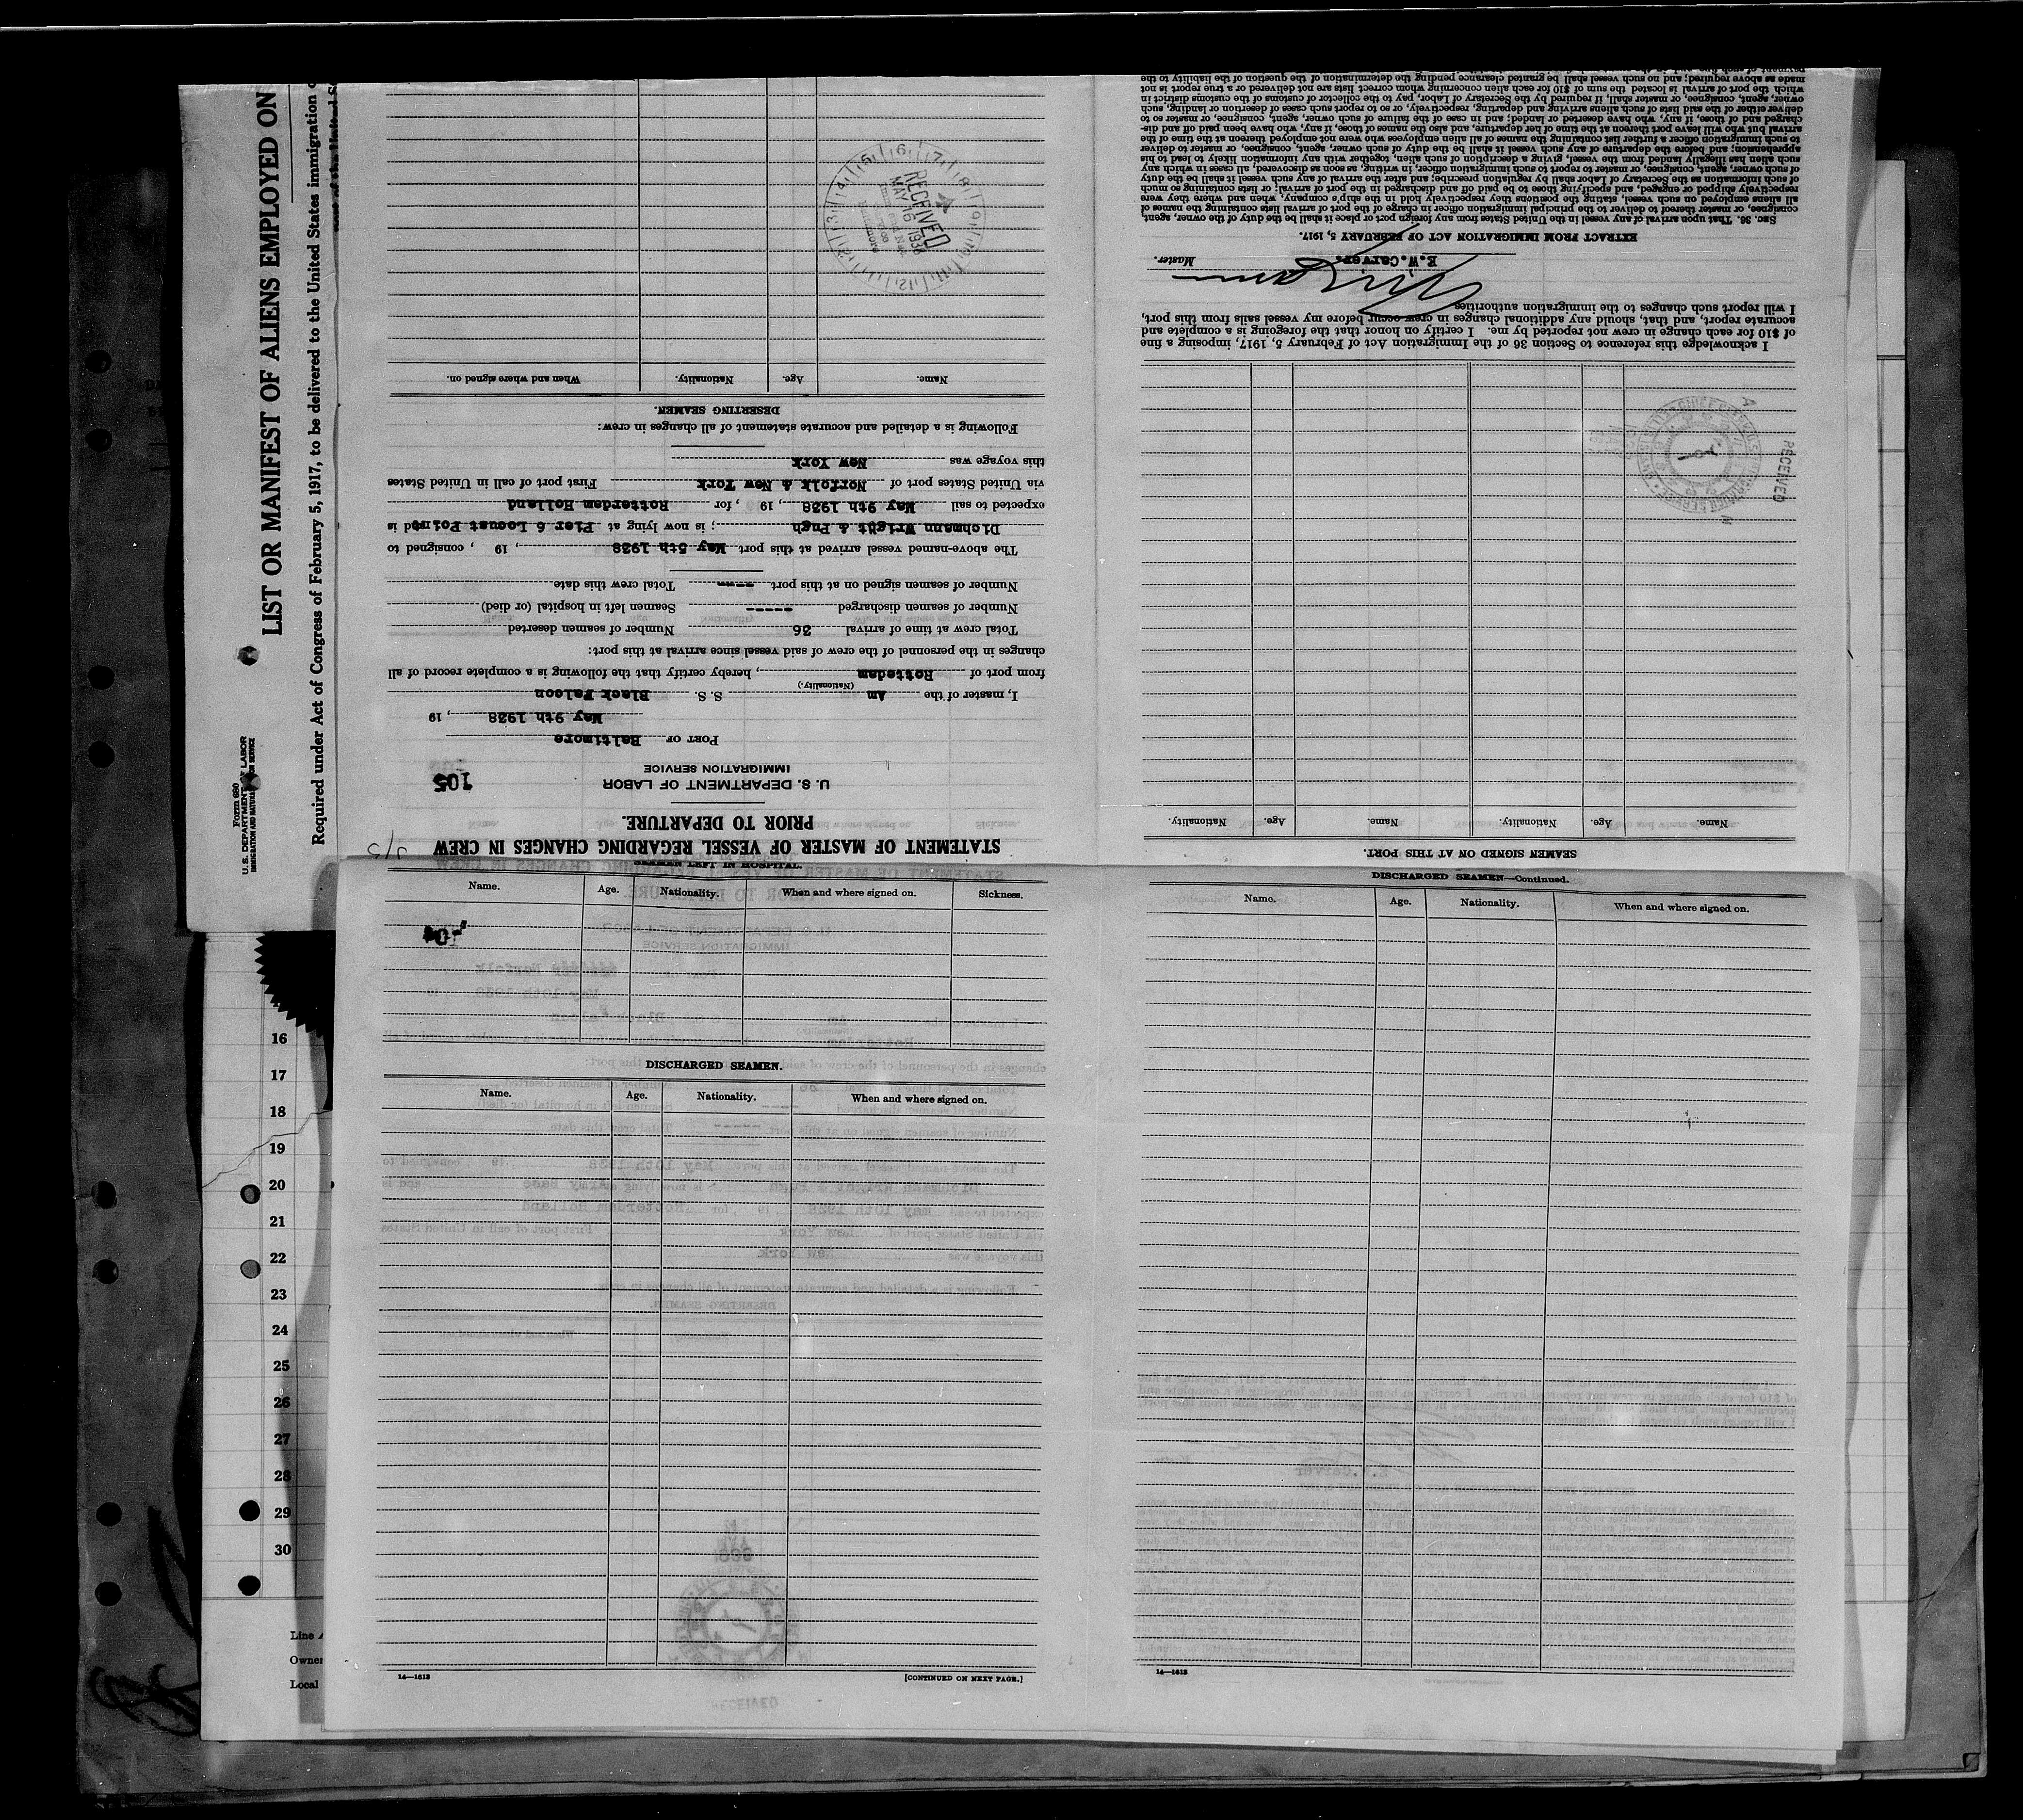 LIST OR MANIFEST OF ALIENS EMPLOYED ON
Required under Act of Congress of February 5, 1917, to be delivered to the United States immigration
Form 680
U. S. DEPARTMENT OF LABOR
IMMIGRATION AND NATURALIZATION SERVICE
STATEMENT OF MASTER OF VESSEL REGARDING CHANGES IN CREW
PRIOR TO DEPARTURE.
U. S. DEPARTMENT OF LABOR
IMMIGRATION SERVICE
105
PORT OF Baltimore
May 9th 1938, 19
I, master of the Am S. S. Black Falcon
(Nationality.)
from port of Rottedam, hereby certify that the following is a complete record of all
changes in the personnel of the crew of said vessel since arrival at this port:
Total crew at time of arrival 36 Number of seamen deserted
Number of seamen discharged ----- Seamen left in hospital (or died)
Number of seamen signed on at this port ---- Total crew this date
The above-named vessel arrived at this port May 5th 1938, 19 , consigned to
Dichmann Wright & Pugh; is now lying at Pier 6 Locust Point and is
expected to sail May 9th 1938, 19 , for Rotterdam Holland
via United States port of Norfolk & New York First port of call in United States
this voyage was New York
Following is a detailed and accurate statement of all changes in crew:
DESERTING SEAMEN.
Name. Age. Nationality. When and where signed on.
RECEIVED
MAY 16 1938
Baltimore
SEAMEN SIGNED ON AT THIS PORT.
Name. Age. Nationality. Name. Age. Nationality.
RECEIVED
I acknowledge this reference to Section 36 of the Immigration Act of February 5, 1917, imposing a fine
of $10 for each change in crew not reported by me. I certify on honor that the foregoing is a complete and
accurate report, and that, should any additional changes in crew occur before my vessel sails from this port,
I will report such changes to the immigration authorities.
E.W.Carver. Master.
EXTRACT FROM IMMIGRATION ACT OF FEBRUARY 5, 1917.
Sec. 36. That upon arrival of any vessel in the United States from any foreign port or place it shall be the duty of the owner, agent,
consignee, or master thereof to deliver to the principal immigration officer in charge of the port of arrival lists containing the names of
all aliens employed on such vessel, stating the positions they respectively hold in the ship's company, when and where they were
respectively shipped or engaged, and specifying those to be paid off and discharged in the port of arrival; or lists containing so much
of such information as the Secretary of Labor shall by regulation prescribe; and after the arrival of any such vessel it shall be the duty
of such owner, agent, consignee, or master to report to such immigration officer, in writing, as soon as discovered, all cases in which any
such alien has illegally landed from the vessel, giving a description of such alien, together with any information likely to lead to his
apprehension; and before the departure of any such vessel it shall be the duty of such owner, agent, consignee, or master to deliver
to such immigration officer a further list containing the names of all alien employees who were not employed thereon at the time of the
arrival but who will leave port thereon at the time of her departure, and also the names of those, if any, who have been paid off and dis-
charged and of those, if any, who have deserted or landed; and in case of the failure of such owner, agent, consignee, or master so to
deliver either of the said lists of such aliens arriving and departing, respectively, or so to report such cases of desertion or landing, such
owner, agent, consignee, or master shall, if required by the Secretary of Labor, pay to the collector of customs of the customs district in
which the port of arrival is located the sum of $10 for each alien concerning whom correct lists are not delivered or a true report is not
made as above required; and no such vessel shall be granted clearance pending the determination of the question of the liability to the
SEAMEN LEFT IN HOSPITAL.
Name. Age. Nationality. When and where signed on. Sickness.
DISCHARGED SEAMEN.
Name. Age. Nationality. When and where signed on.
14—1613 [CONTINUED ON NEXT PAGE.]
DISCHARGED SEAMEN—Continued.
Name. Age. Nationality. When and where signed on.
14—1613
16
17
18
19
20
21
22
23
24
25
26
27
28
29
30
Line
Owner
Local